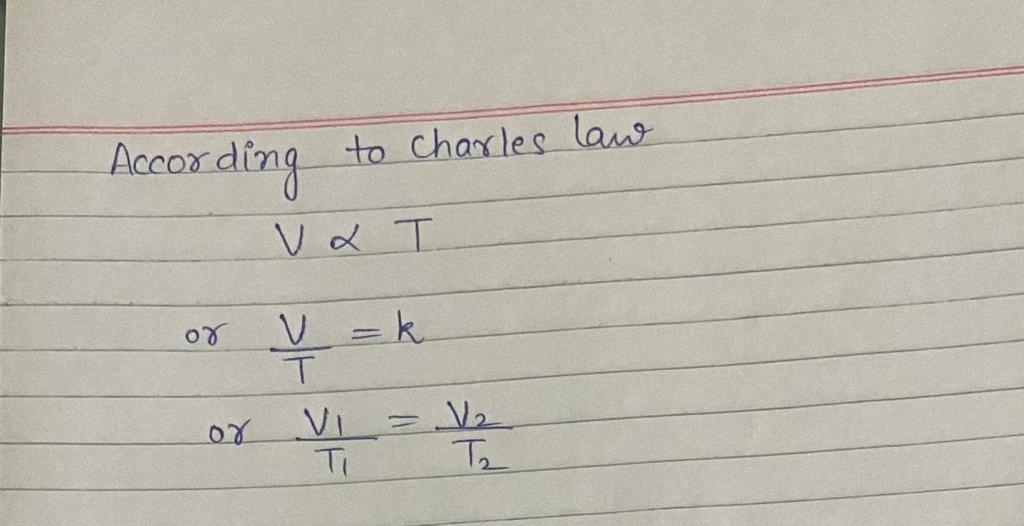 According to Charles law
V ∝ T
or V/T = k
or V1/T1 = V2/T2